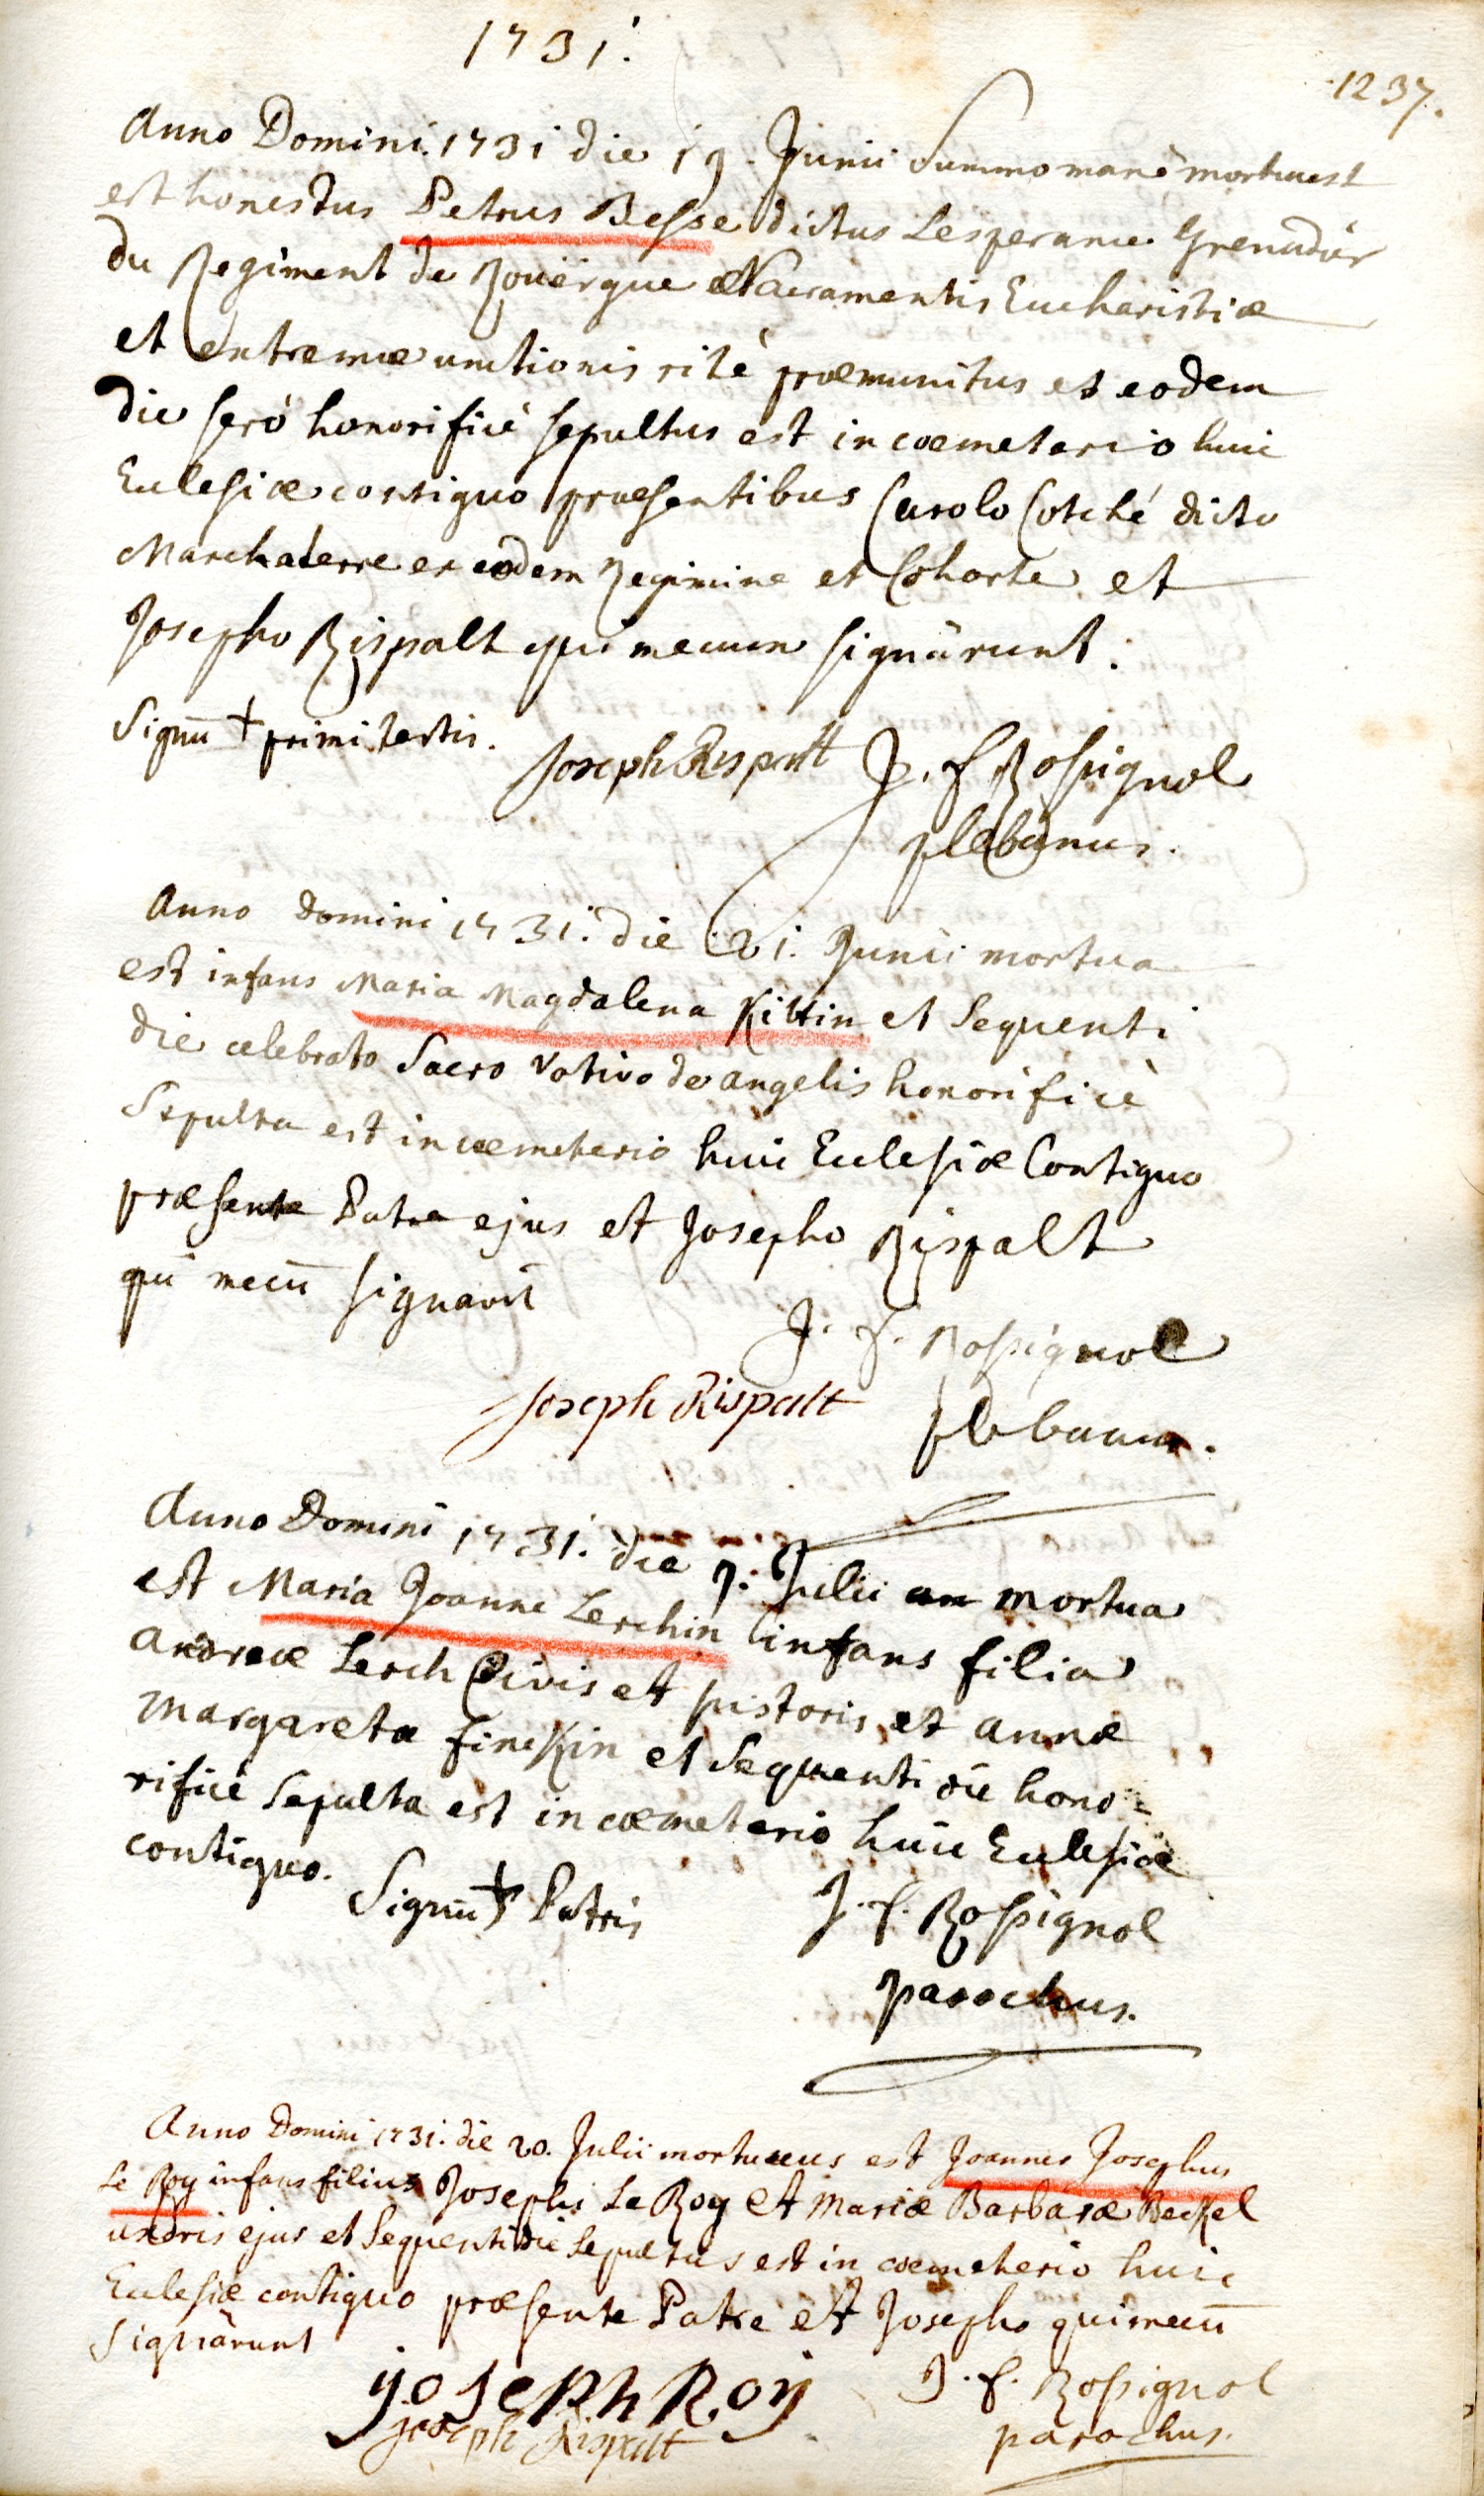 1731.
1237.
Anno Domini 1731 die 19. Junii Summo manè mortuus est
est honestus Petrus Besse dictus Lesperance Grenadier
du Regiment de Roüergue Sacramentis Eucharistiæ
et extremæ unctionis ritè præmunitus et eodem
die serò honorificè sepultus est in cœmeterio huic
Ecclesiæ contiguo præsentibus Carolo Cotché dicto
Marchaterre ex eodem Regimine et Cohorte et
Josepho Rispalt qui mecum signârunt.
Signū + primi testis.
Joseph Rispalt
J. f. Rossignol
plebanus.
Anno Domini 1731. die 21. Junii mortua
est infans Maria Magdalena Kittin et sequenti
die celebrato Sacro votivo de angelis honorificè
Sepulta est in cœmeterio huic Ecclesiæ Contiguo
præsente Patre ejus et Josepho Rispalt
qui mecū signavit
J. f. Rossignol
Joseph Rispalt
plebanus.
Anno Domini 1731. die 7. Julii mortua
est Maria Joanne Lerchin infans filia
Andreæ Lerch Civis et pistoris et annæ
Margaretæ finckin et sequenti die hono=
rificè sepulta est in cœmeterio huic Ecclesiæ
contiguo.
Signū + Patris
J. f. Rossignol
parochus.
Anno Domini 1731. die 20. Julii mortuus est Joannes Josephus
Le Roy infans filius Josephi Le Roy et Mariæ Barbaræ Beckel
uxoris ejus et sequenti die sepultus est in cœmeterio huic
Ecclesiæ contiguo præsente Patre et Josepho qui mecū
signârunt
joseph Roy
J. f. Rossignol
Joseph Rispalt
parochus.